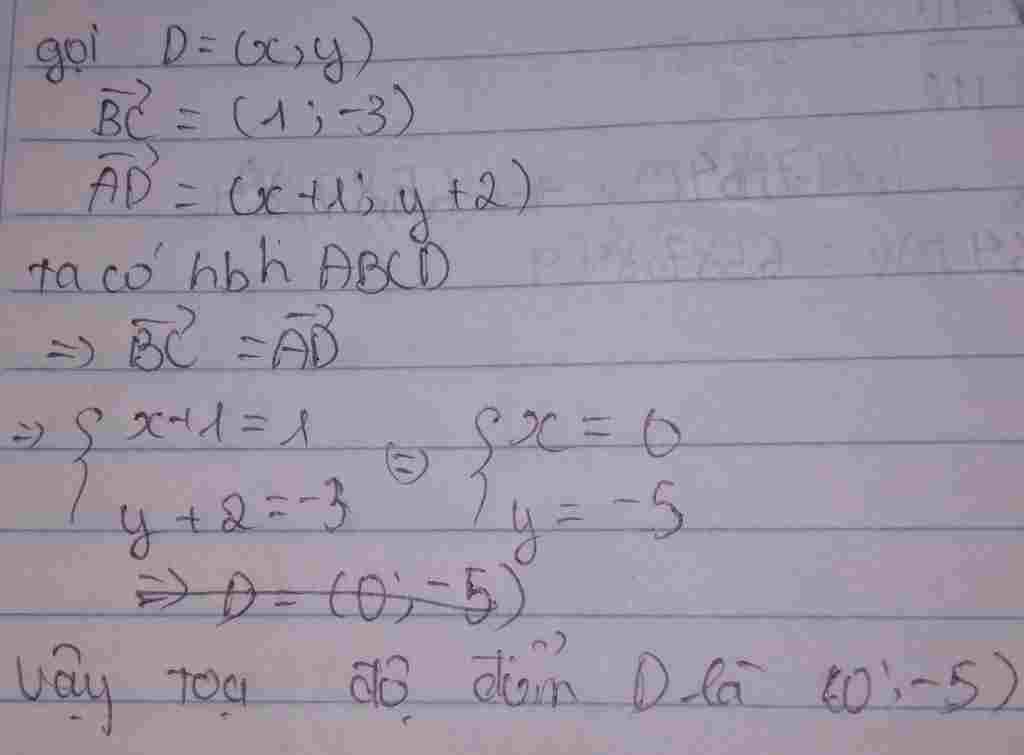 gọi D = (x; y)
BC→ = (1; -3)
AD→ = (x+1; y+2)
ta có hbh ABCD
=> BC→ = AD→
=> { x+1 = 1 <=> { x = 0
y + 2 = -3 y = -5
=> D = (0; -5)
Vậy toạ độ điểm D là (0; -5)